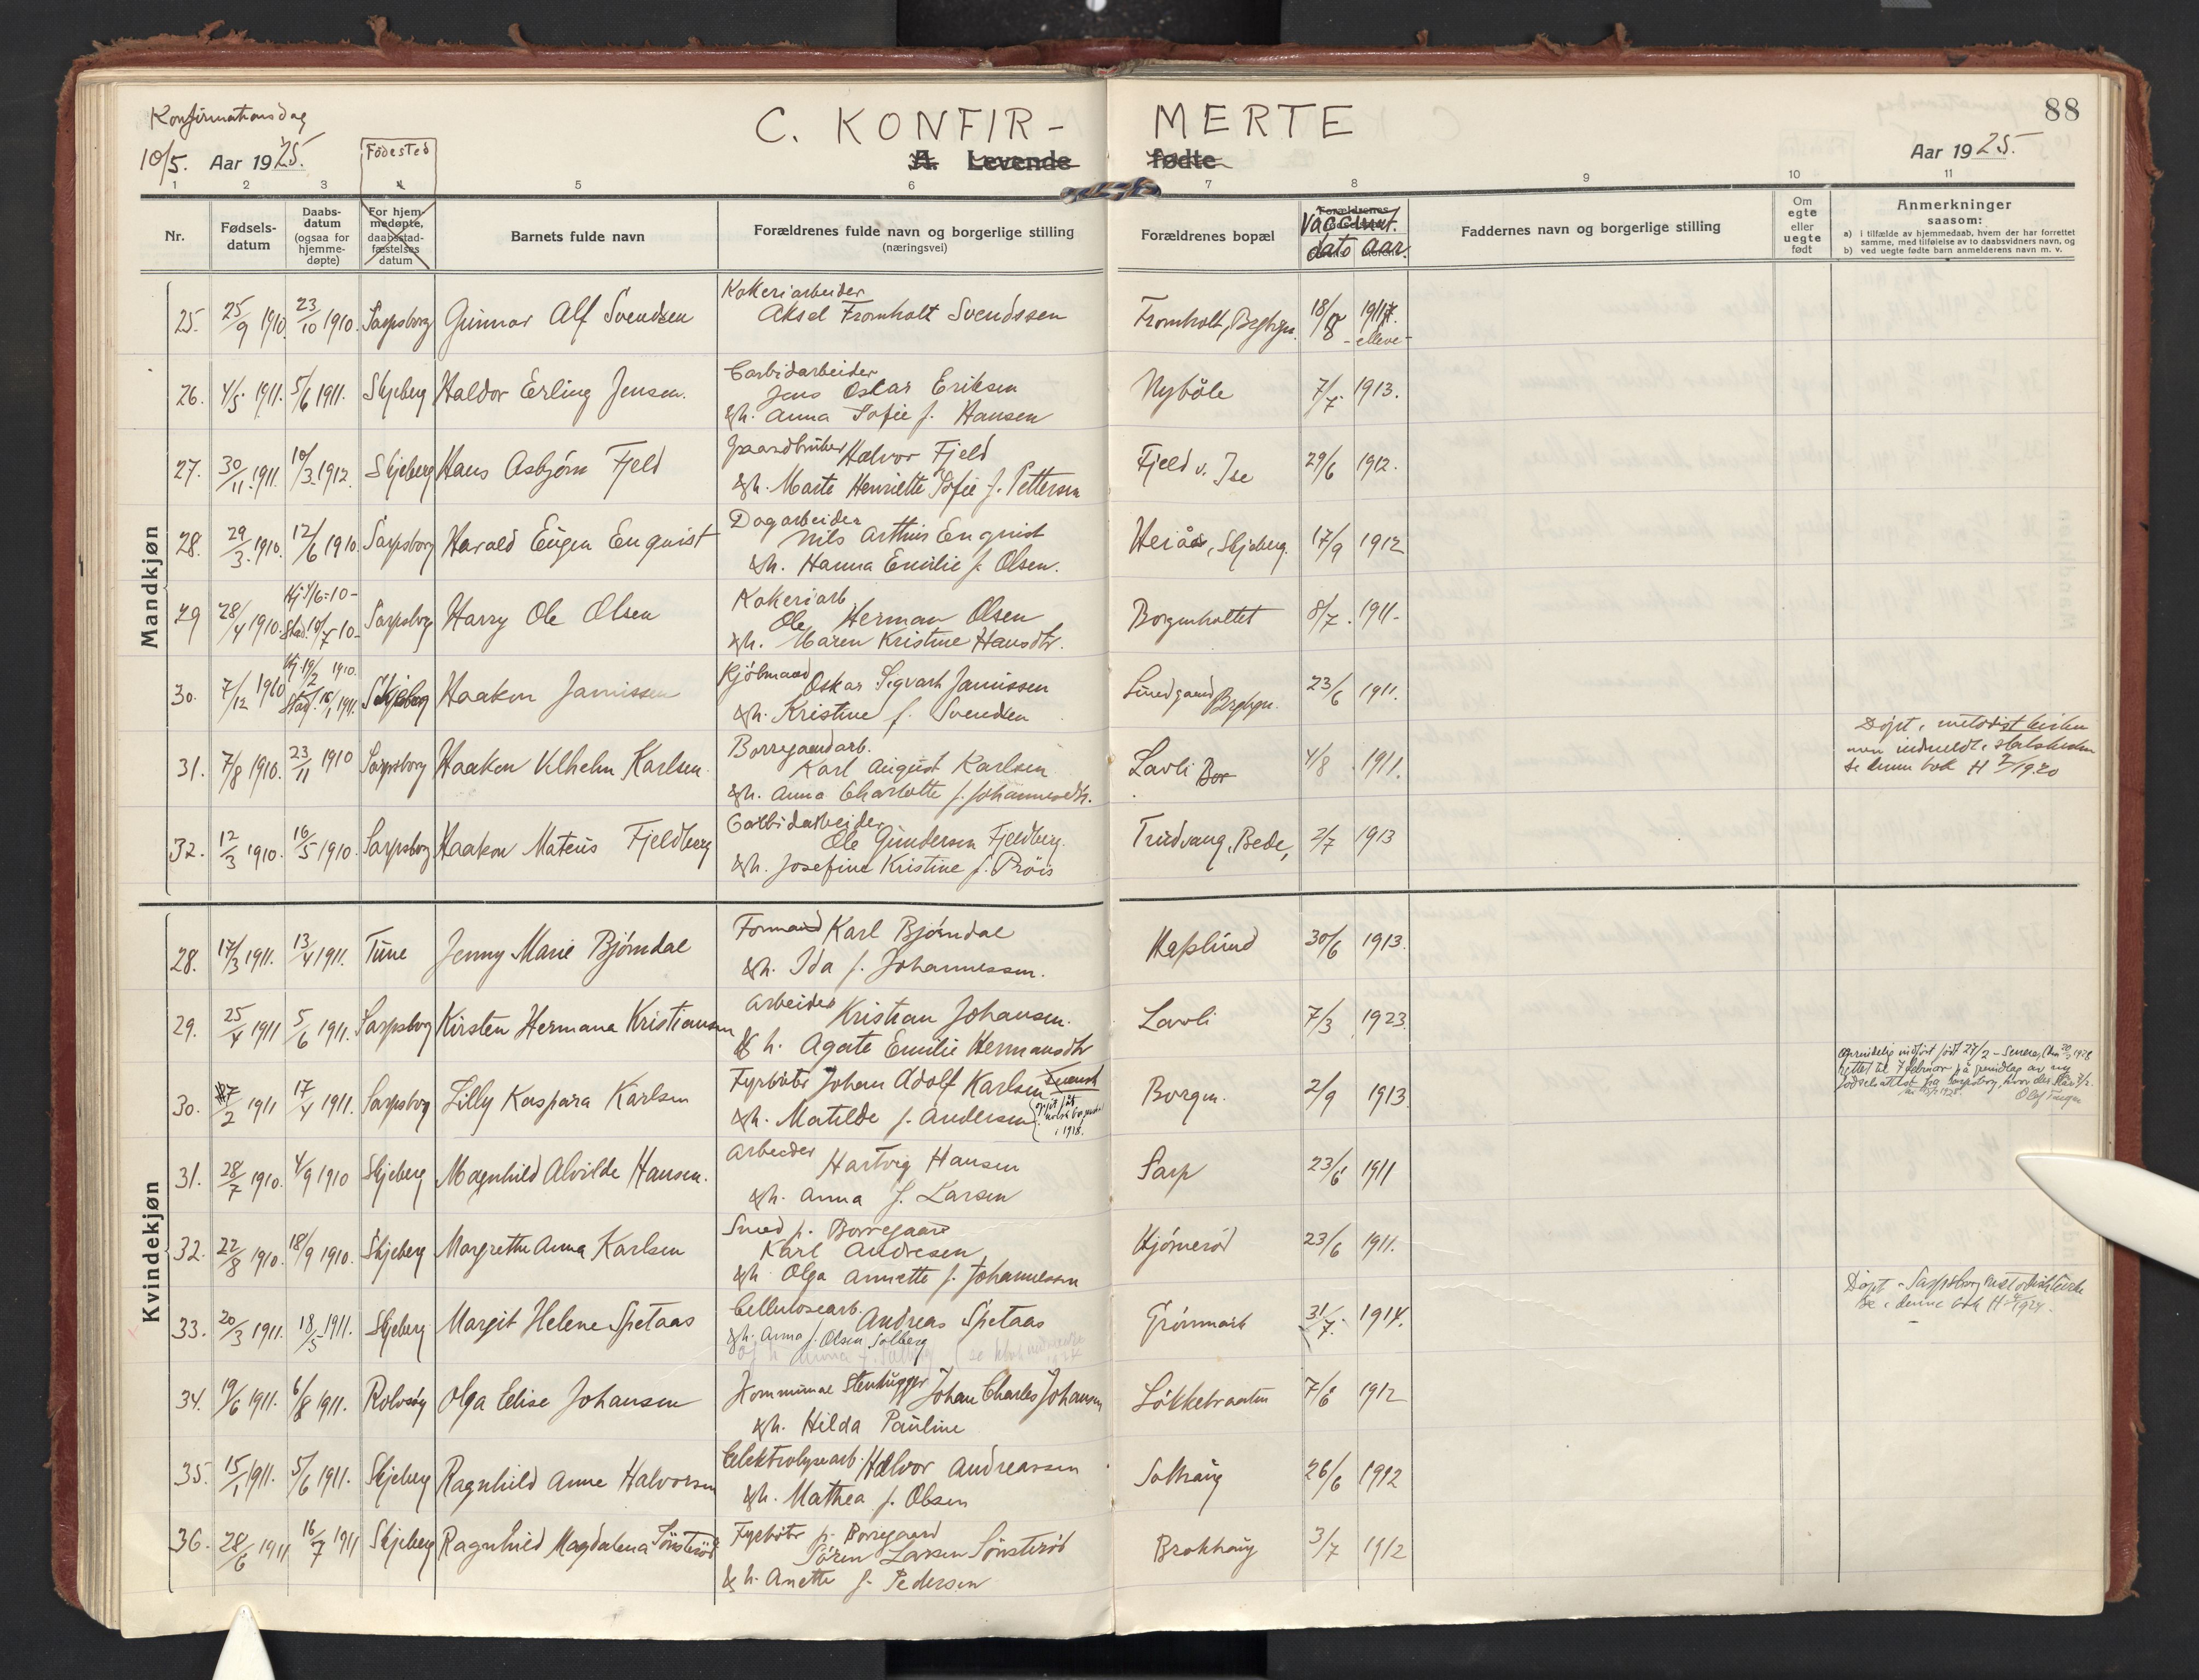 Konfirmationsdag
10/5. Aar 1925.
Fødested
C. KONFIR-MERTE
A. Levende fødte
88
Aar 1925.
1 2 3 4 5 6 7 8 9 10 11
Nr.
Fødsels-datum
Daabs-datum (ogsaa for hjemme-døpte)
For hjem-medøpte, daabsstad-fæstelses datum
Barnets fulde navn
Forældrenes fulde navn og borgerlige stilling (næringsvei)
Forældrenes bopæl
Vaccinat. dato aar.
Faddernes navn og borgerlige stilling
Om egte eller uegte født
Anmerkninger saasom:
a) i tilfælde av hjemmedaab, hvem der har forrettet samme, med tilføielse av to daabsvidners navn, og
b) ved uegte fødte barn anmelderens navn m. v.
Mandkjøn
25. 25/9 1910. 23/10 1910. Sarpsborg Gunnar Alf Svendsen
Kokeriarbeider
Aksel Fromholt Svendssen
Fromholt, Brghgn. 18/8 1911. -elleve-
26. 4/5 1911. 5/6 1911. Skjeberg Haldor Erling Jensen.
Carbidarbeider
Jens Oskar Eriksen
&h. Anna Sofie f. Hansen
Nybøle 7/7 1913.
27. 30/11 1911. 10/3 1912. Skjeberg Hans Asbjørn Fjeld
Gaardbruker Halvor Fjeld
&h. Marte Henriette Sofie f. Pettersen
Fjeld v. Ise 29/6 1912.
28. 29/3 1910. 12/6 1910 Sarpsborg Harald Eugen Enquist
Dagarbeider
Nils Arthur Enquist
&h. Hanna Emilie f. Olsen.
Heiås, Skjeberg. 17/9 1912
29 28/4 1910. Sarpsborg Harry Ole Olsen
Kokeriarb.
Ole Herman Olsen
&h. Maren Kristine Hansdtr.
Borgenholtet 8/7. 1911.
30. 7/12 1910 Skjeberg Haakon Jamissen
Kjøbmand
Oskar Sigvart Jamissen
&h. Kristine f. Svendsen
Brghgn. 23/6 1911.
31. 7/8 1910. 23/11 1910 Sarpsborg Haakon Vilhelm Karlsen
Borregaardarb.
Karl August Karlsen
&h. Anna Charlotte f. Johannesdtr.
Lavli Bor 4/8 1911.
Døpt i metodistkirken
nu indmeldt i statskirken
se denne bok H 2/1920
32. 12/3 1910. 16/5 1910. Sarpsborg Haakon Mateus Fjeldberg
Carbidarbeider
Ole Gundersen Fjeldberg.
&h. Josefine Kristine f. Prøis
Trudvang, Bede, 2/7 1913
Kvindekjøn
28. 17/3 1911. 13/4 1911. Tune Jenny Marie Bjørndal
Formand Karl Bjørndal
&h. Ida f. Johannessen.
Hafslund 30/6 1913.
29. 25/4 1911 5/6 1911. Sarpsborg Kirsten Hermana Kristiansen
Arbeider Kristian Johansen.
& h. Agate Emilie Hermansdtr
Lavli 7/3 1923.
30. 7/2 1911 17/4 1911. Sarpsborg Lilly Kaspara Karlsen
Fyrbøter Johan Adolf Karlsen svensk
&h. Matilde f. Andersen
i 1918.
Borgen. 2/9 1913.
Oprindelig indført født 27/2 - Senere
rettet til 7 februar på grundlag av ny
fødselsattest fra Sarpsborg, hvor der står 7/2.
31. 28/7 1910. 4/9 1910 Skjeberg Magnhild Alvilde Hansen.
Arbeider Hartvig Hansen
&h. Anna f. Larsen
Sarp 23/6 1911
32. 22/8 1910. 18/9 1910. Skjeberg Margrethe Anna Karlsen
Smed p. Borregaard
Karl Andresen
&h. Olga Annette f. Johannessen
Hjørnerød 23/6 1911.
33. 20/3 1911. 18/5 1911. Skjeberg Margit Helene Spetaas
Cellulosearb. Andreas Spetaas
&h. Anna f. Olsen Solberg
Grønmark 31/7. 1914.
Døpt i Sarpsborg metodistkirke
se i denne bok H 4/1924.
34. 19/6 1911. 6/8 1911. Rolvsøy Olga Elise Johansen
Kommunal Stenhugger Johan Charles Johansen
&h. Hilda Pauline
Løkkebraaten 7/6 1912
35. 15/1 1911. 5/6 1911. Skjeberg Ragnhild Anne Halvorsen
Elektrolysearb. Halvor Andreassen
&h. Mathea f. Olsen
Solhaug 26/6 1912
36. 28/6 1911 16/7 1911 Skjeberg Ragnhild Magdalena Sønsterød
Fyrbøter p. Borregaard
Søren Larsen Sønsterød
& h. Anette f. Pedersen
Brokhaug 3/7 1912